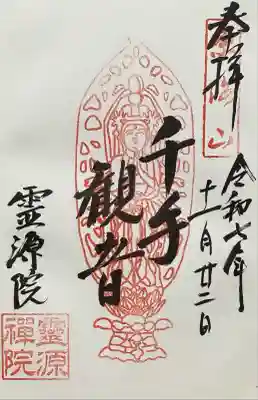 奉拝
令和七年
十一月廿二日
千手
観音
霊源院
靈源
禅院